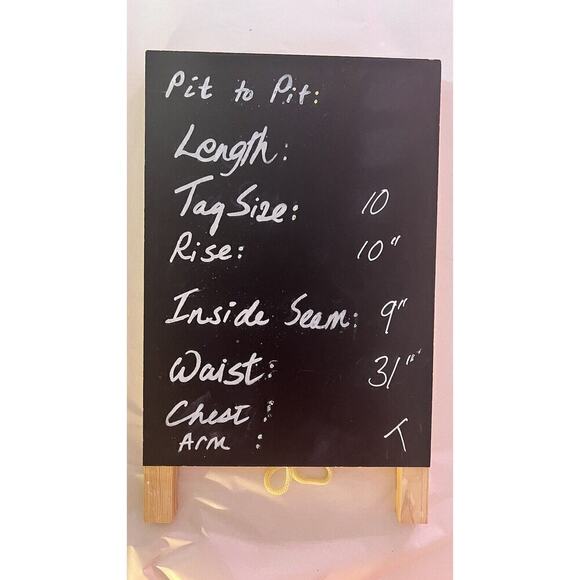 Pit to Pit:
Length:
Tag Size: 10
Rise: 10"
Inside Seam: 9"
Waist: 31"
Chest:
Arm : T